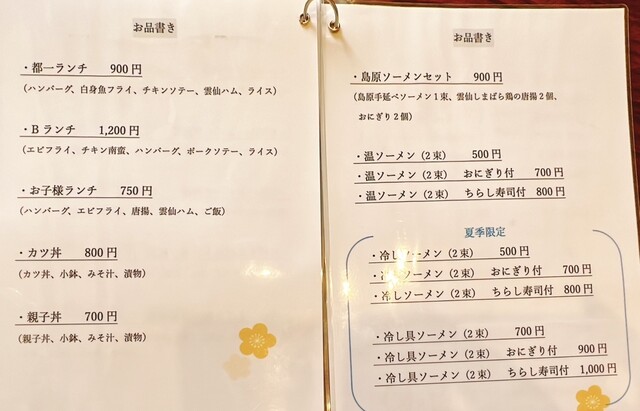 お品書き
・都一ランチ 900円
（ハンバーグ、白身魚フライ、チキンソテー、雲仙ハム、ライス）
・Bランチ 1,200円
（エビフライ、チキン南蛮、ハンバーグ、ポークソテー、ライス）
・お子様ランチ 750円
（ハンバーグ、エビフライ、唐揚、雲仙ハム、ご飯）
・カツ丼 800円
（カツ丼、小鉢、みそ汁、漬物）
・親子丼 700円
（親子丼、小鉢、みそ汁、漬物）
お品書き
・島原ソーメンセット 900円
（島原手延べソーメン1束、雲仙しまばら鶏の唐揚2個、
おにぎり2個）
・温ソーメン（2束） 500円
・温ソーメン（2束） おにぎり付 700円
・温ソーメン（2束） ちらし寿司付 800円
夏季限定
・冷しソーメン（2束） 500円
・冷しソーメン（2束） おにぎり付 700円
・冷しソーメン（2束） ちらし寿司付 800円
・冷し具ソーメン（2束） 700円
・冷し具ソーメン（2束） おにぎり付 900円
・冷し具ソーメン（2束） ちらし寿司付 1,000円